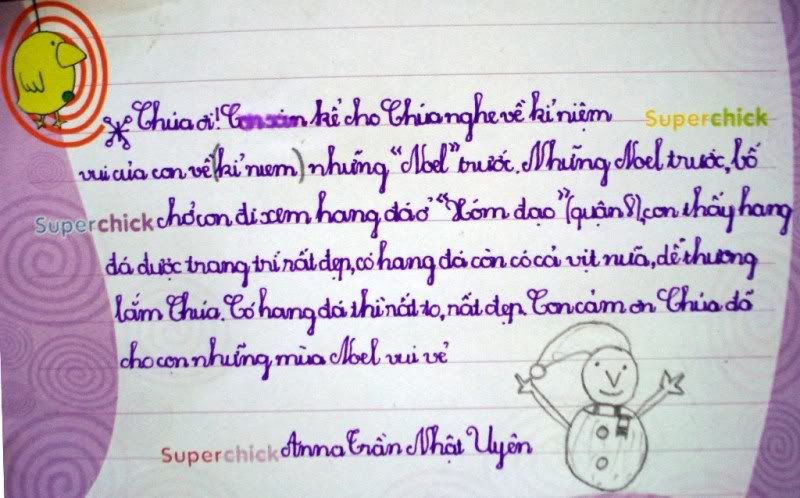 Chúa ơi! Con xin kể cho Chúa nghe về kỉ niệm Superchick
vui của con về (kỉ niem) những "Noel" trước. Những Noel trước, bố
Superchick chở con đi xem hang đá ở "Xóm đạo" (quận 8), con thấy hang
đá được trang trí rất đẹp, có hang đá còn có cả vịt nữa, dễ thương
lắm Chúa. Có hang đá thì rất to, rất đẹp. Con cảm ơn Chúa đã
cho con những mùa Noel vui vẻ
Superchick Anna Trần Nhật Uyên